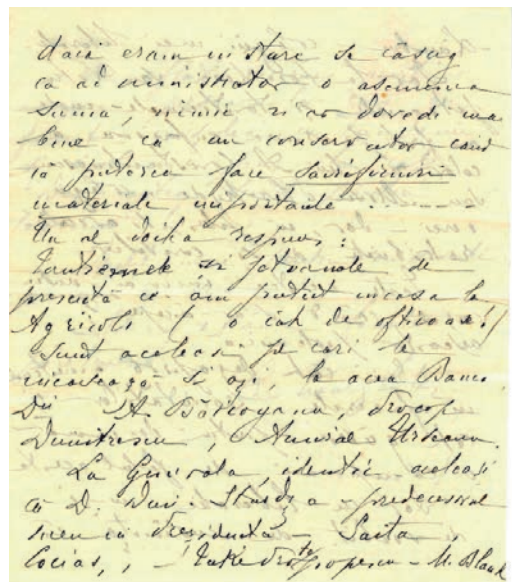 daca eram in stare se câștig
ca administrator o asemenea
suma, nimic n'ar dovedi mai
bine ca un conservator când
ia puterea face sacrificiuri
materiale importante.
Un al doilea respuns:
Tantiemele si jetoanele de
presență ce am putut incasa la
Agricola ( o cât de
sunt aceleași pe cari le
incasează si azi, la acea Banca
Dii A. Bărcoyanu, Procop
Dumitrescu, Aurice Urseanu.
La Generala, identic aceleași
ca D. Dim. Sturdza - predecesorul
meu la Președință - Saita,
Cocias, , - Take Protopopescu - M. Blank